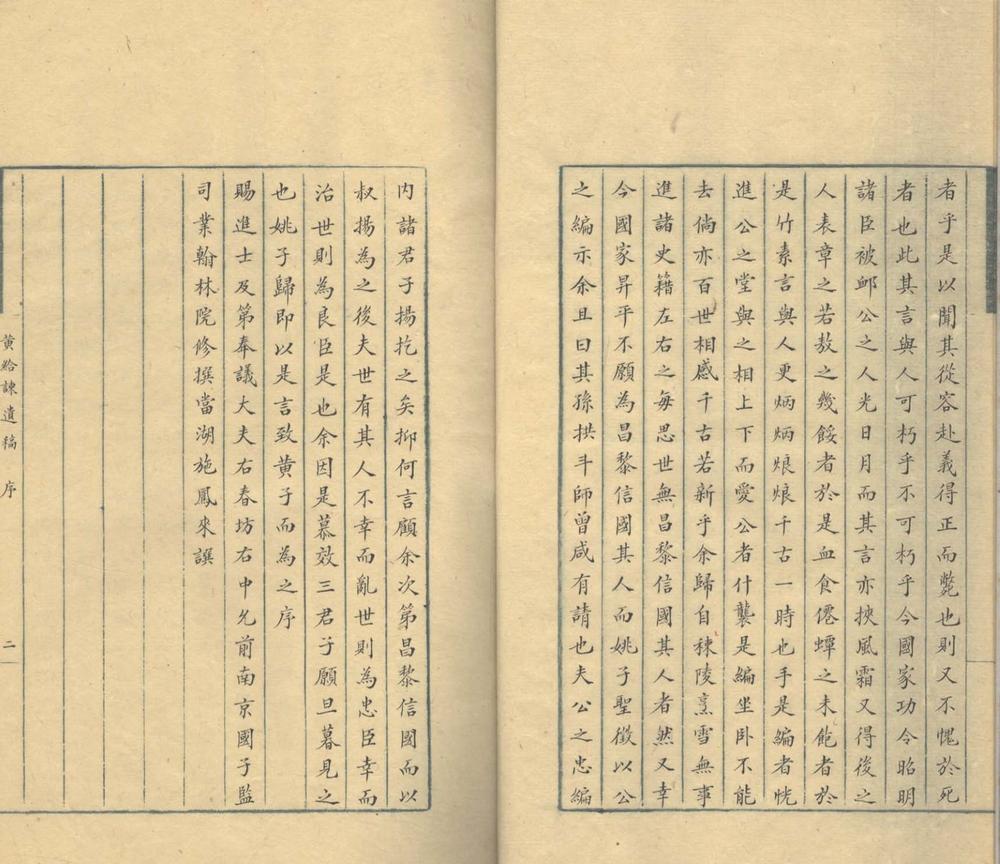 者乎是以聞其從容赴義得正而斃也則又不愧於死
者也此其言與人可朽乎不可朽乎今國家功令昭明
諸臣被䘏公之人光日月而其言亦挾風霜又得後之
人表章之若敖之幾餒者於是血食僊蟫之未飽者於
是竹素言與人更炳炳烺烺千古一時也手是編者恍
進公之堂與之相上下而愛公者什襲是編坐卧不能
去倘亦百世相感千古若新乎余歸自秣陵烹雪無事
進諸史籍左右之每思世無昌黎信國其人者然又幸
今國家昇平不願為昌黎信國其人而姚子聖徵以公
之編示余且曰其孫拱斗師曾咸有請也夫公之忠編
内諸君子揚扢之矣抑何言顧余次第昌黎信國而以
叔揚為之後夫世有其人不幸而亂世則為忠臣幸而
治世則為良臣是也余因是慕效三君子願旦暮見之
也姚子歸即以是言致黄子而為之序
賜進士及第奉議大夫右春坊右中允前南京國子監
司業翰林院修撰當湖施鳳來譔
黄給諫遺稿 序 二